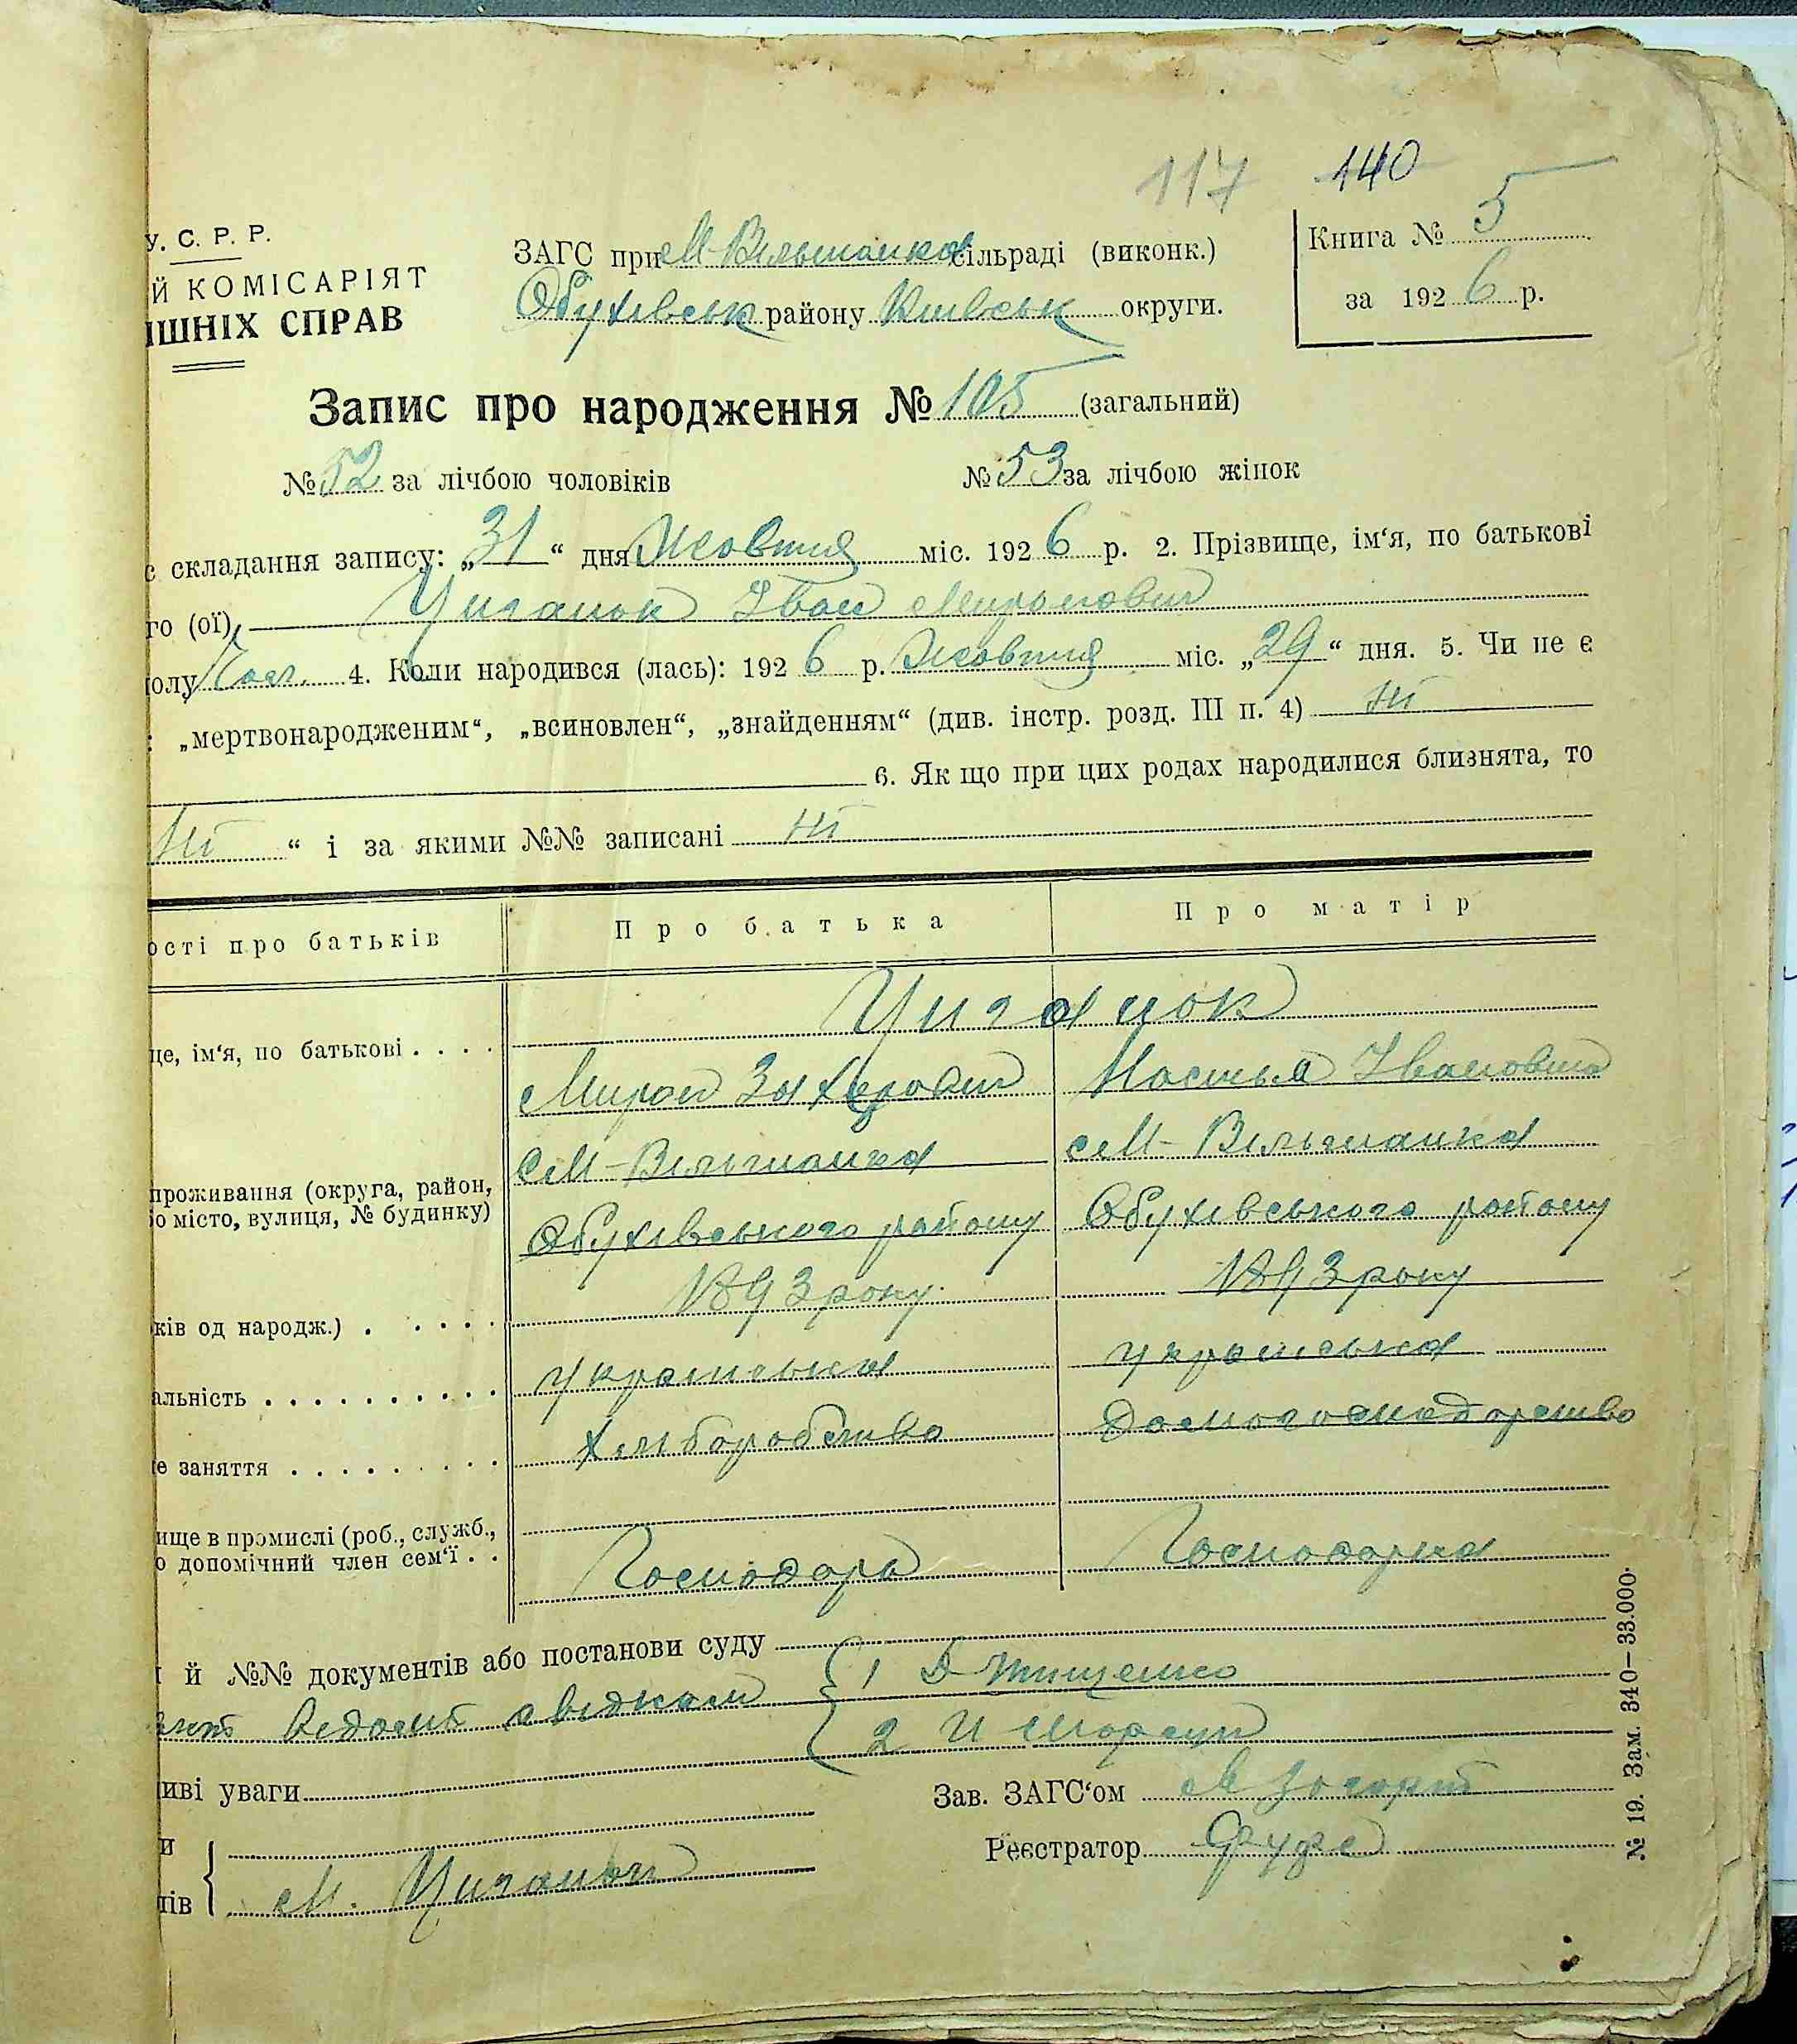 117 140
У. С. Р. Р.
Й КОМІСАРІЯТ
ІШНІХ СПРАВ
ЗАГС при М-Вільшанка сільраді (виконк.)
Обухівськ району Київськ округи.
Книга № 5
за 1926 р.
Запис про народження № 105 (загальний)
№ 52 за лічбою чоловіків № 53 за лічбою жінок
с складання запису: „31“ дня Жовтня міс. 1926 р. 2. Прізвище, ім‘я, по батькові
го (ої) Циганок Іван Миронович
олу Чол. 4. Коли народився (лась): 1926 р. Жовтня міс. „29“ дня. 5. Чи не є
: „мертвонародженим“, „всиновлен“, „знайденням“ (див. інстр. розд. III п. 4) ні
6. Як що при цих родах народилися близнята, то
ні “ і за якими №№ записані ні
ості про батьків Про батька Про матір
Циганок
це, ім‘я, по батькові . . . .
Мирон Захарович Настья Івановна
М-Вільшанка М-Вільшанка
проживання (округа, район,
о місто, вулиця, № будинку)
Обухівського району Обухівського району
1893 року 1893 року
ків од народж.) . . . . .
українська українська
альність . . . . . . . . . .
хліборобство Домогосподарство
е заняття . . . . . . . . .
ище в промислі (роб., служб.,
о допомічний член сем‘ї . .
Господарь Господарка
і й №№ документів або постанови суду
відомі свідкам { 1 Д Тищенко
2 И Моргун
иві уваги
Зав. ЗАГС‘ом
Реєстратор
и
пів { М. Циганок
№ 19. Зам. 340–33.000.